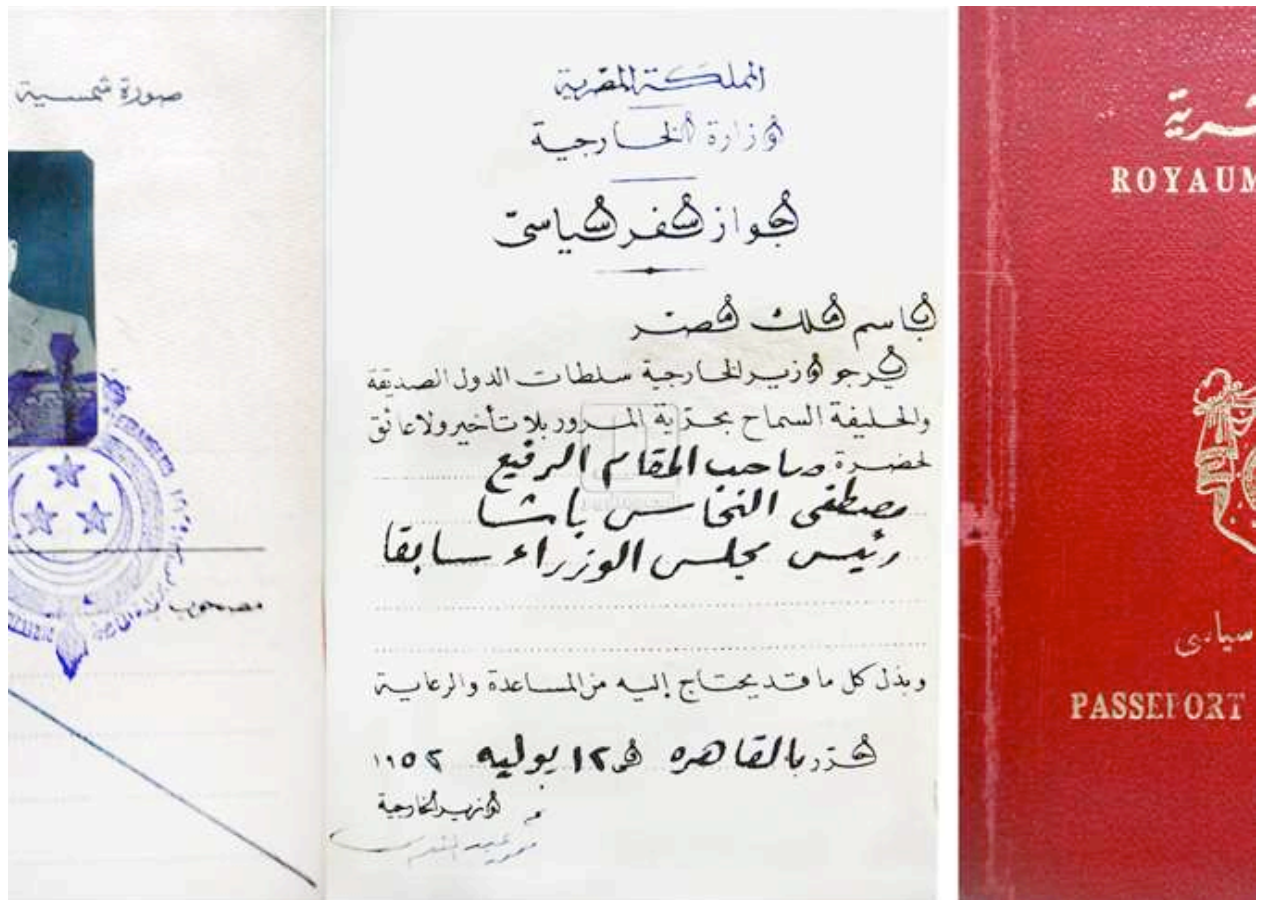 صورة شمسية
المملكة المصرية
وزارة الخارجية
جواز سفر سياسى
باسم ملك مصر
يرجو وزير الخارجية سلطات الدول الصديقة
والحليفة السماح بحرّية المرور بلا تأخير ولا عائق
لحضرة صاحب المقام الرفيع
مصطفى النحاس باشا
رئيس مجلس الوزراء سابقا
وبذل كل ما قد يحتاج إليه من المساعدة والرعاية
حرّر بالقاهره فى ١٢ يوليه ١٩٥٢
وزير الخارجية
مصحوب
ROYAUM
سياسى
PASSEPORT